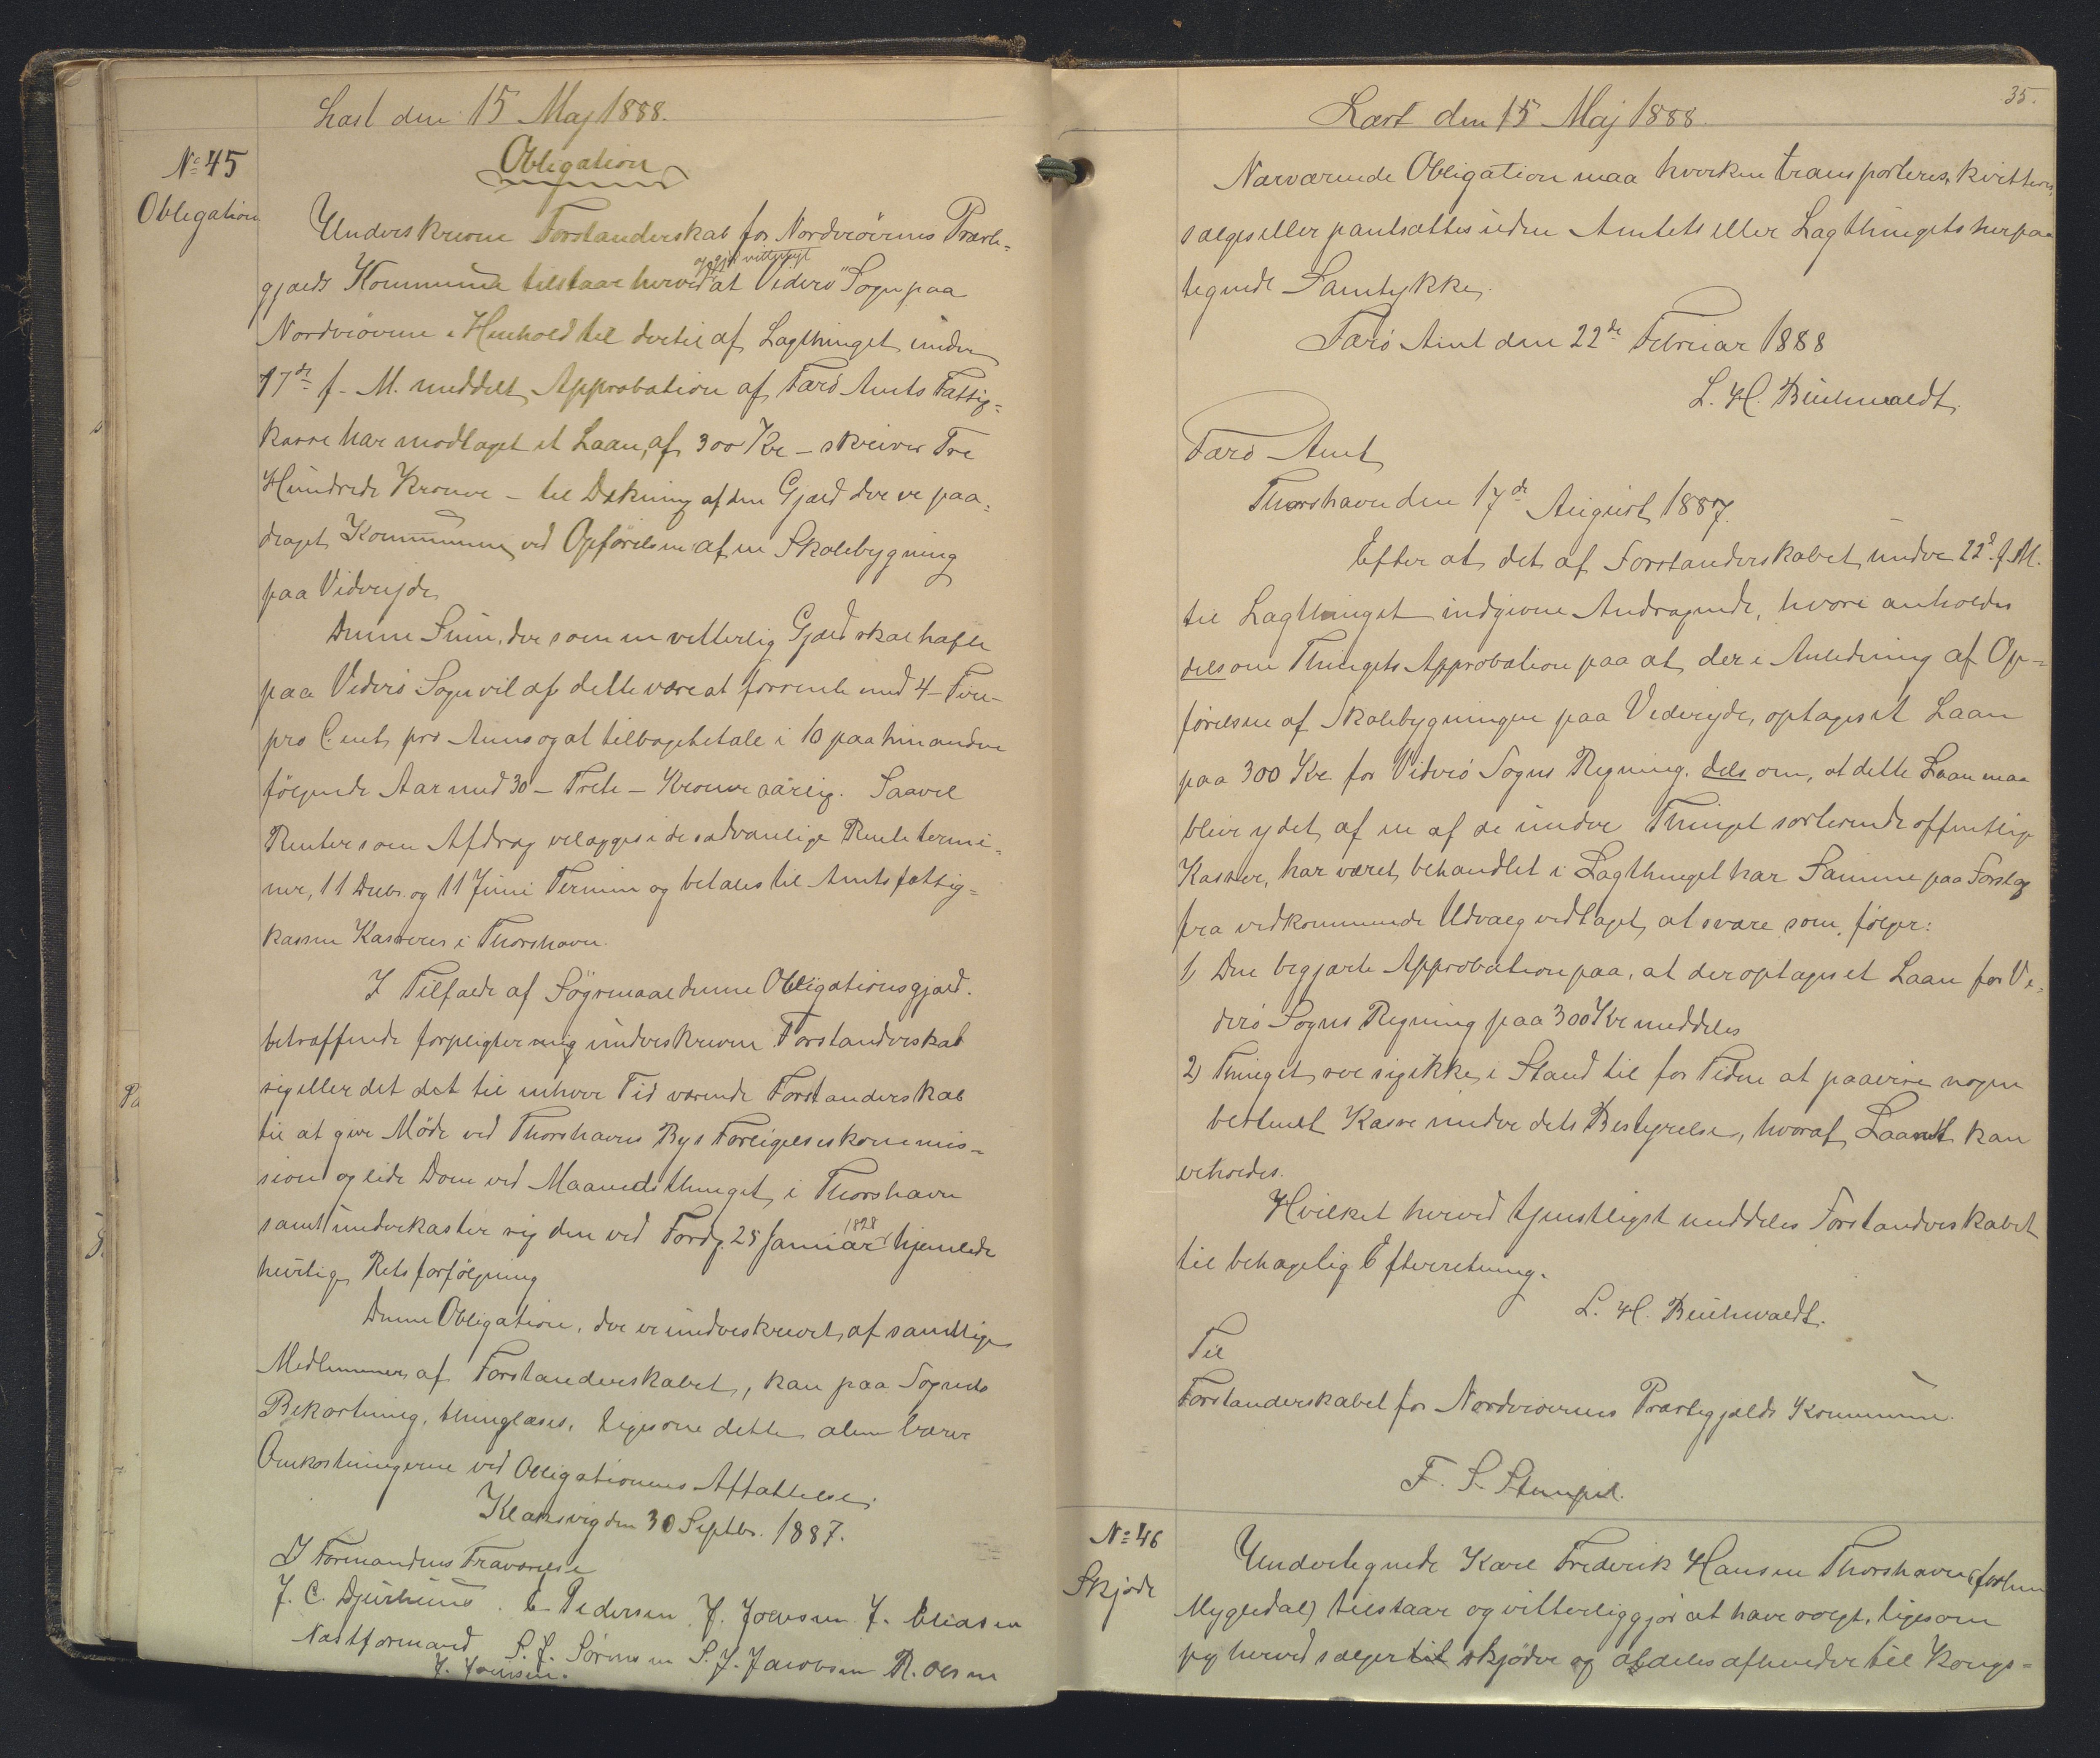 Læst den 15 Maj 1888.
No 45
Obligation
Obligation
Underskrevne Forstanderskab for Nordreöernes Præste-
gjælds Kommune tilstaar herved og gjör vitterligt at Viderö Sogn paa
Nordreöerne i Henhold til dertil af Lagthinget under
17de f. M. meddelt Approbation af Færö Amts Fattig-
kasse har modtaget et Laan af 300 Kr - skriver Tre
Hundrede Kroner - til Dækning af den Gjæld der er paa-
draget Kommunen ved Opförelsen af en Skolebygning
paa Viderejde
Denne Sum, der som en vitterlig Gjæld skal hæfte
paa Viderö Sogn vil af dette være at forrente med 4 - Fire -
pro Cent pro Anno og at tilbagebetale i 10 paa hinanden
fölgende Aar med 30 - Treti - Kroner aarlig. Saavel
Renter som Afdrag erlægges i de sædvanlige Rentetermi-
ner, 11 Decbr. og 11 Juni Termin og betales til Amtsfattig-
kassens Kasserer i Thorshavn.
I Tilfælde af Sögsmaal denne Obligationsgjæld
betræffende forpligter undertegnede Forstanderskab
sig eller det det til enhver Tid værende Forstanderskab
til at give Möde ved Thorshavns Bys Forligelseskommis-
sion og lide Dom ved Maanedsthinget i Thorshavn
samt underkaster sig den ved Fordg. 25 Januar 1828 hjemlede
hurtige Retsforfölgning
Denne Obligation, der er underskrevet af samtlige
Medlemmer af Forstanderskabet, kan paa Sognets
Bekostning, thinglæses, ligesom dette alene bærer
Omkostningerne ved Obligationens Affattelse.
Klaksvig den 30 Septbr. 1887.
I Formandens Fraværelse
J. C. Djurhuus. E Pedersen J. Joensen J. Eliasen
Næstformand S. J. Sörensen S. J. Jacobsen R. Olsen
J. Joensen.
35.
Læst den 15 Maj 1888.
Nærværende Obligation maa hverken transporteres, kvitteres,
sælges eller pantsættes uden Amtets eller Lagthingets herpaa
tegnede Samtykke.
Færö Amt den 22de Februar 1888
L. H. Buchwaldt.
Færö Amt
Thorshavn den 17de August 1887.
Efter at det af Forstanderskabet under 22d. f. M.
til Lagthinget indgivne Andragende, hvori anholdes
dels om Thingets Approbation paa at der i Anledning af Op-
förelsen af Skolebygningen paa Viderejde, optages et Laan
paa 300 Kr for Viderö Sogns Regning, dels om, at dette Laan maa
blive ydet af en af de under Thinget sorterende offentlige
Kasser, har været behandlet i Lagthinget har Samme paa Forslag
fra vedkommende Udvalg vedtaget, at svare som fölger:
1) Den begjærte Approbation paa, at der optages et Laan for Vi-
derö Sogns Regning paa 300 Kr meddeles
2) Thinget ser sig ikke i Stand til for Tiden at paavise nogen
bestemt Kasse under dets Bestyrelse, hvoraf Laanet kan
erholdes.
Hvilket herved tjenstligst meddeles Forstanderskabet
til behagelig Efterretning.
L. H. Buchwaldt.
Til
Forstanderskabet for Nordreöernes Præstegjælds Kommune.
F. S. Stempel.
No 46
Skjöde
Undertegnede Karl Frederik Hansen Thorshavn (forhen
Mygledal) tilstaar og vitterliggjör at have solgt, ligesom
jeg herved sælger til skjöder og aldeles afhender til Kongs-